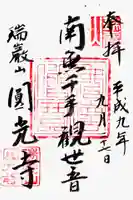 奉拝
平成九年
九月十二日
南無千手觀世音
瑞巌山
圓光寺